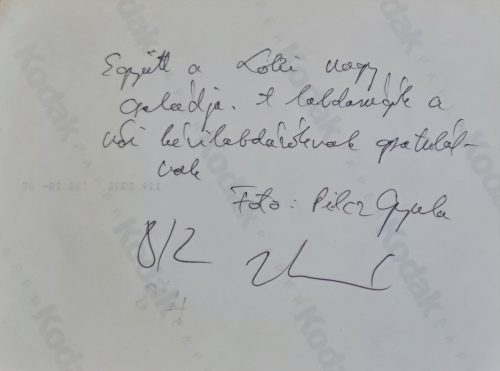 Együtt a Loki nagy
családja. A labdarúgók a
női kézilabdázóknak gratulál-
nak
Foto: Pilcz Gyula
B/2
Kodak
Kodak
Kodak
Kodak
Kodak